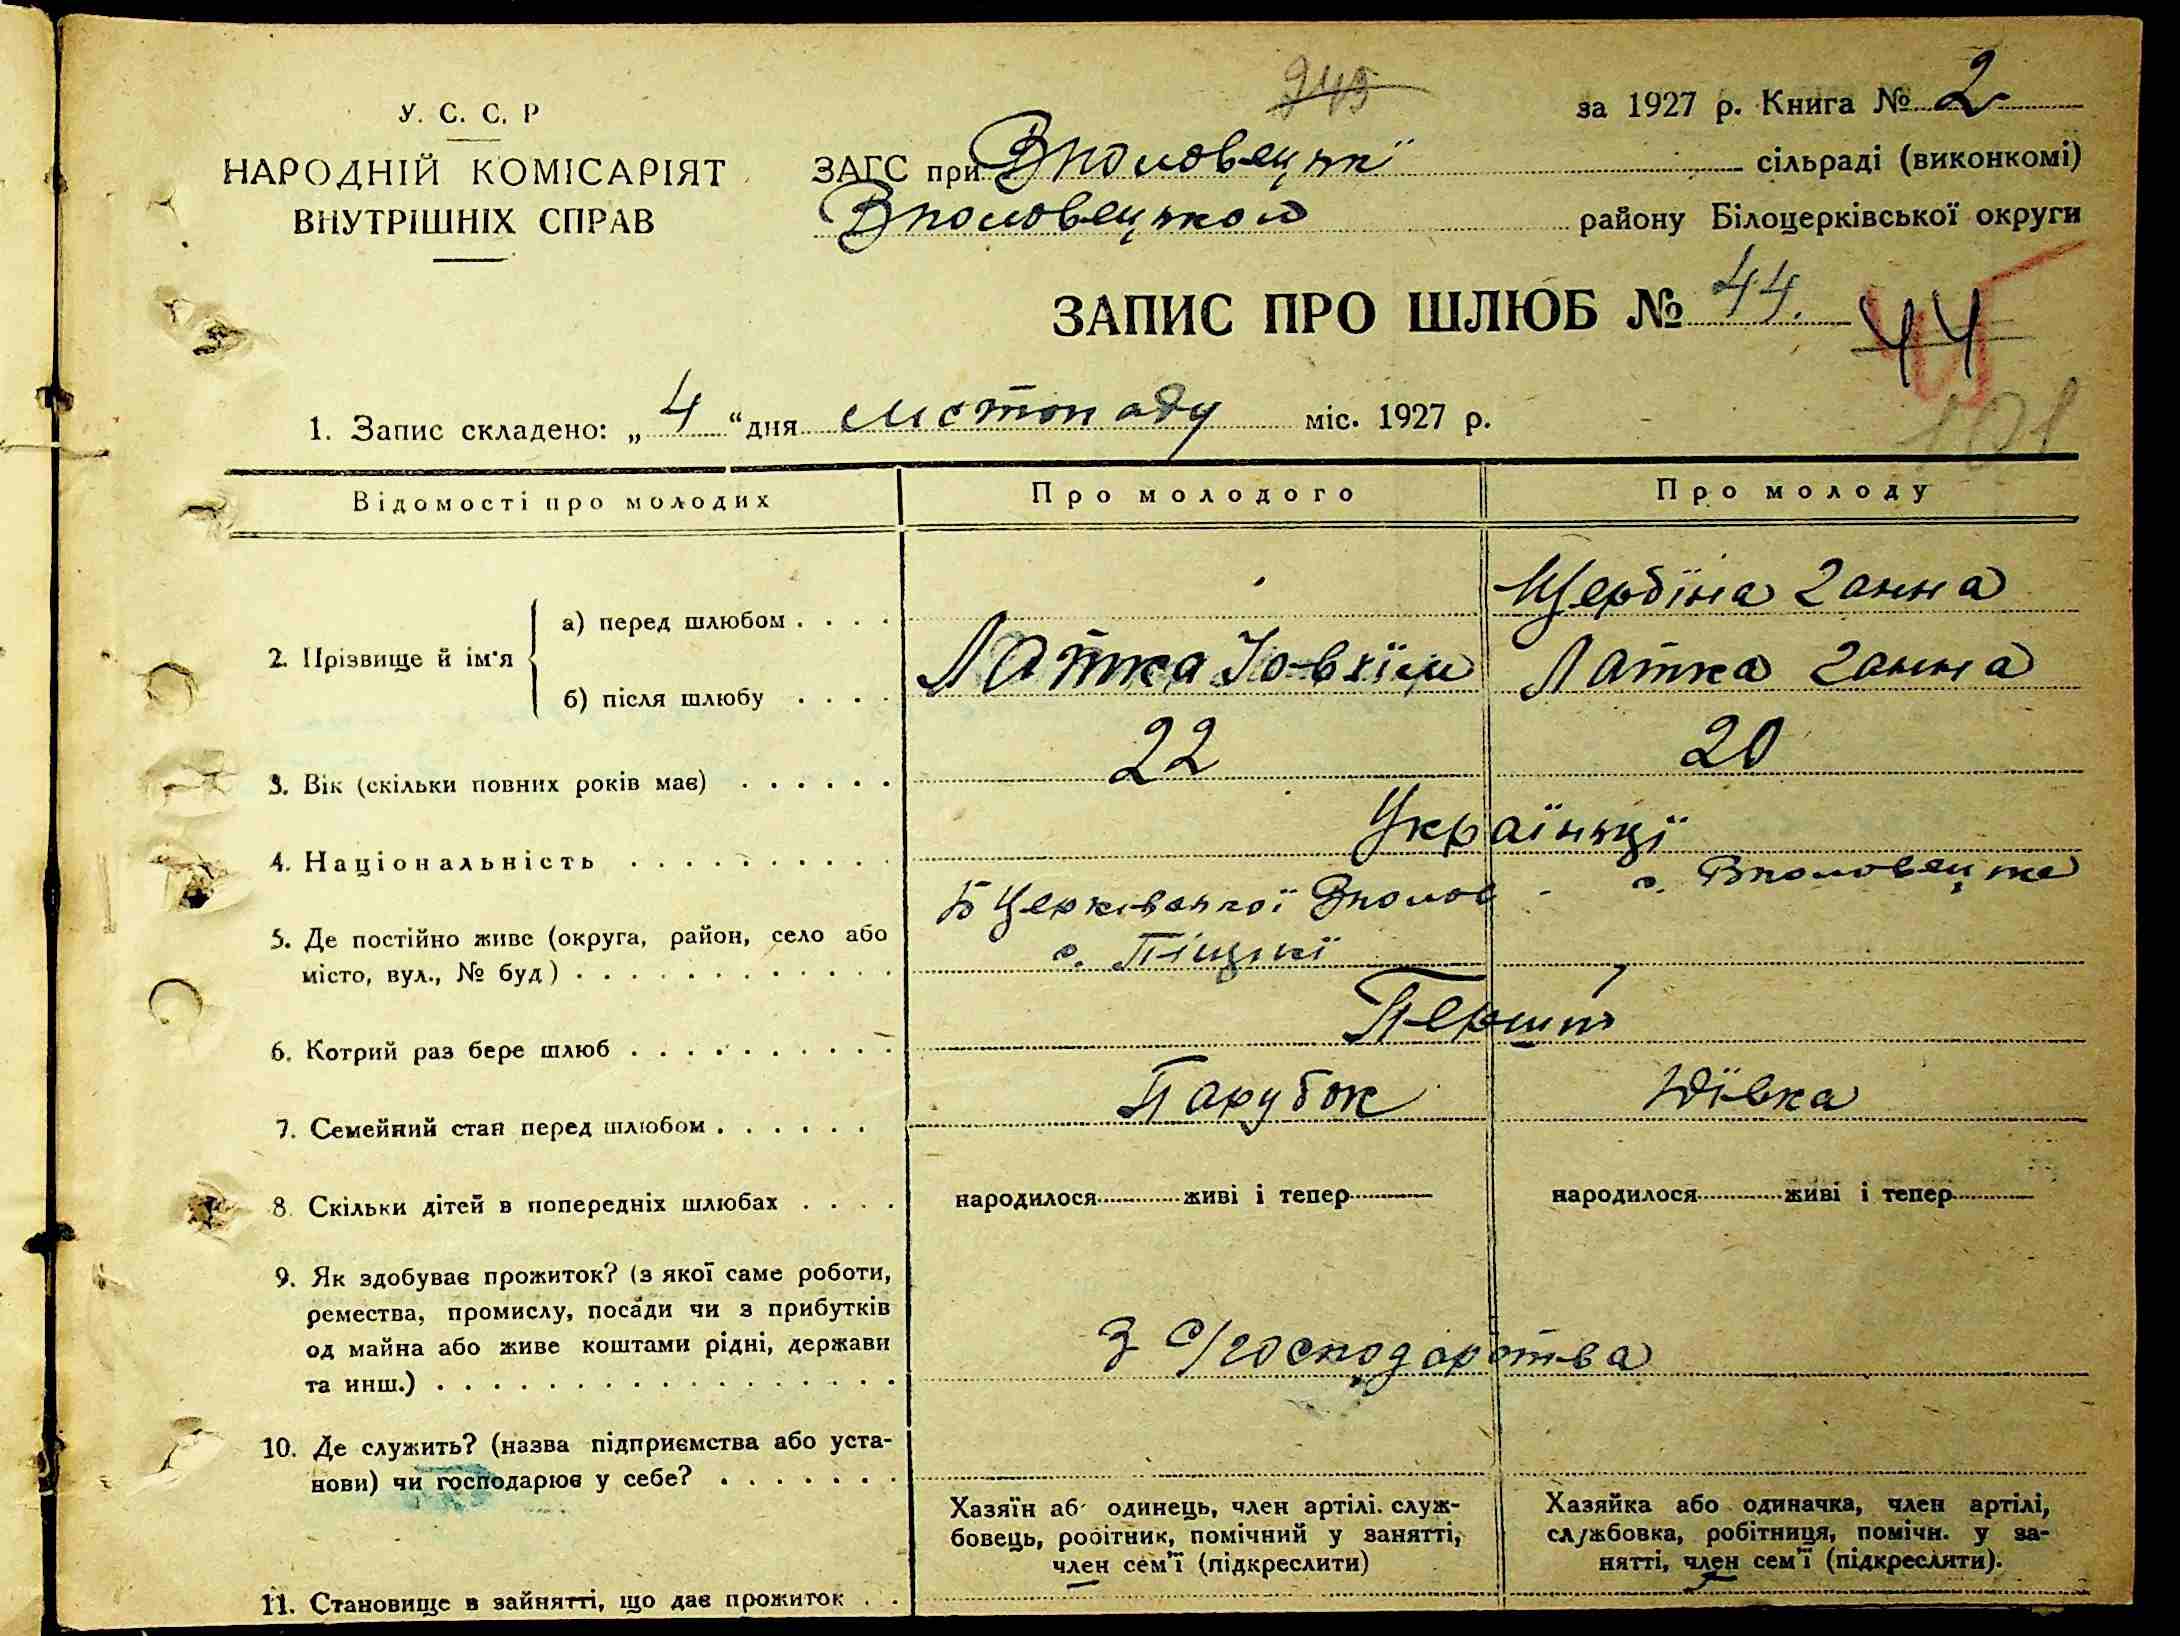 245
У. С. С. Р
НАРОДНІЙ КОМІСАРІЯТ
ВНУТРІШНІХ СПРАВ
за 1927 р. Книга № 2
ЗАГС при Вполовецькі сільраді (виконкомі)
Вполовецького району Білоцерківської округи
ЗАПИС ПРО ШЛЮБ № 44. 44
45
101
1. Запис складено: „ 4 “ дня листопаду міс. 1927 р.
Відомості про молодих Про молодого Про молоду
2. Прізвище й ім'я
а) перед шлюбом . . . . Щербіна Ганна
б) після шлюбу . . . . Латка Іовхїм Латка Ганна
3. Вік (скільки повних років має) . . . . . . 22 20
4. Національність . . . . . . . . . . Українці
5. Де постійно живе (округа, район, село або Б Церківської Вполов - с. Вполовецьке
місто, вул., № буд) . . . . . . . . . . . . с. Піщкі
6. Котрий раз бере шлюб . . . . . . . . . . Перший
7. Семейний стан перед шлюбом . . . . . . Парубок Дівка
8. Скільки дітей в попередніх шлюбах . . . . народилося живі і тепер народилося живі і тепер
9. Як здобуває прожиток? (з якої саме роботи,
ремества, промислу, посади чи з прибутків
од майна або живе коштами рідні, держави З с/господарства
та инш.) . . . . . . . . . . . . . . . . .
10. Де служить? (назва підприємства або уста-
нови) чи господарює у себе? . . . . . . .
Хазяїн аб одинець, член артілі. служ-
бовець, робітник, помічний у занятті,
член сем'ї (підкреслити)
Хазяйка або одиначка, член артілі,
службовка, робітниця, помічн. у за-
нятті, член сем'ї (підкресляти).
11. Становище в зайнятті, що дає прожиток . .